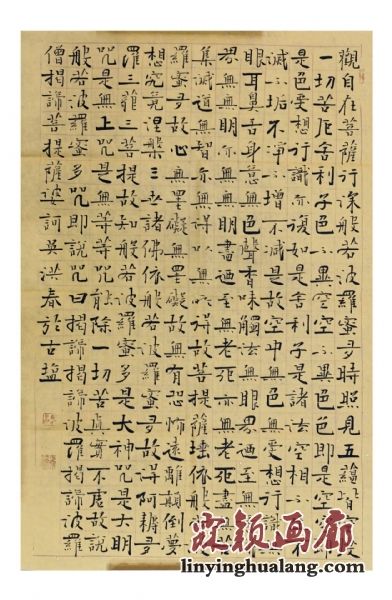 觀自在菩薩行深般若波羅蜜多時照見五蘊皆空度
一切苦厄舍利子色不異空空不異色色即是空空即
是色受想行識亦復如是舍利子是諸法空相不生不
滅不垢不淨不增不減是故空中無色無受想行識無
眼耳鼻舌身意無色聲香味觸法無眼界迺至無意識
界無無明亦無無明盡迺至無老死亦無老死盡無苦
集滅道無智亦無得以無所得故菩提薩埵依般若波
羅蜜多故心無罣礙無罣礙故無有恐怖遠離顛倒夢
想究竟涅槃三世諸佛依般若波羅蜜多故得阿耨多
羅三藐三菩提故知般若波羅蜜多是大神咒是大明
咒是無上咒是無等等咒能除一切苦真實不虛故說
般若波羅蜜多咒即說咒曰揭諦揭諦波羅揭諦波羅
僧揭諦菩提薩婆訶吳洪春於古鹽
霖颖画廊
linyinghualang.com